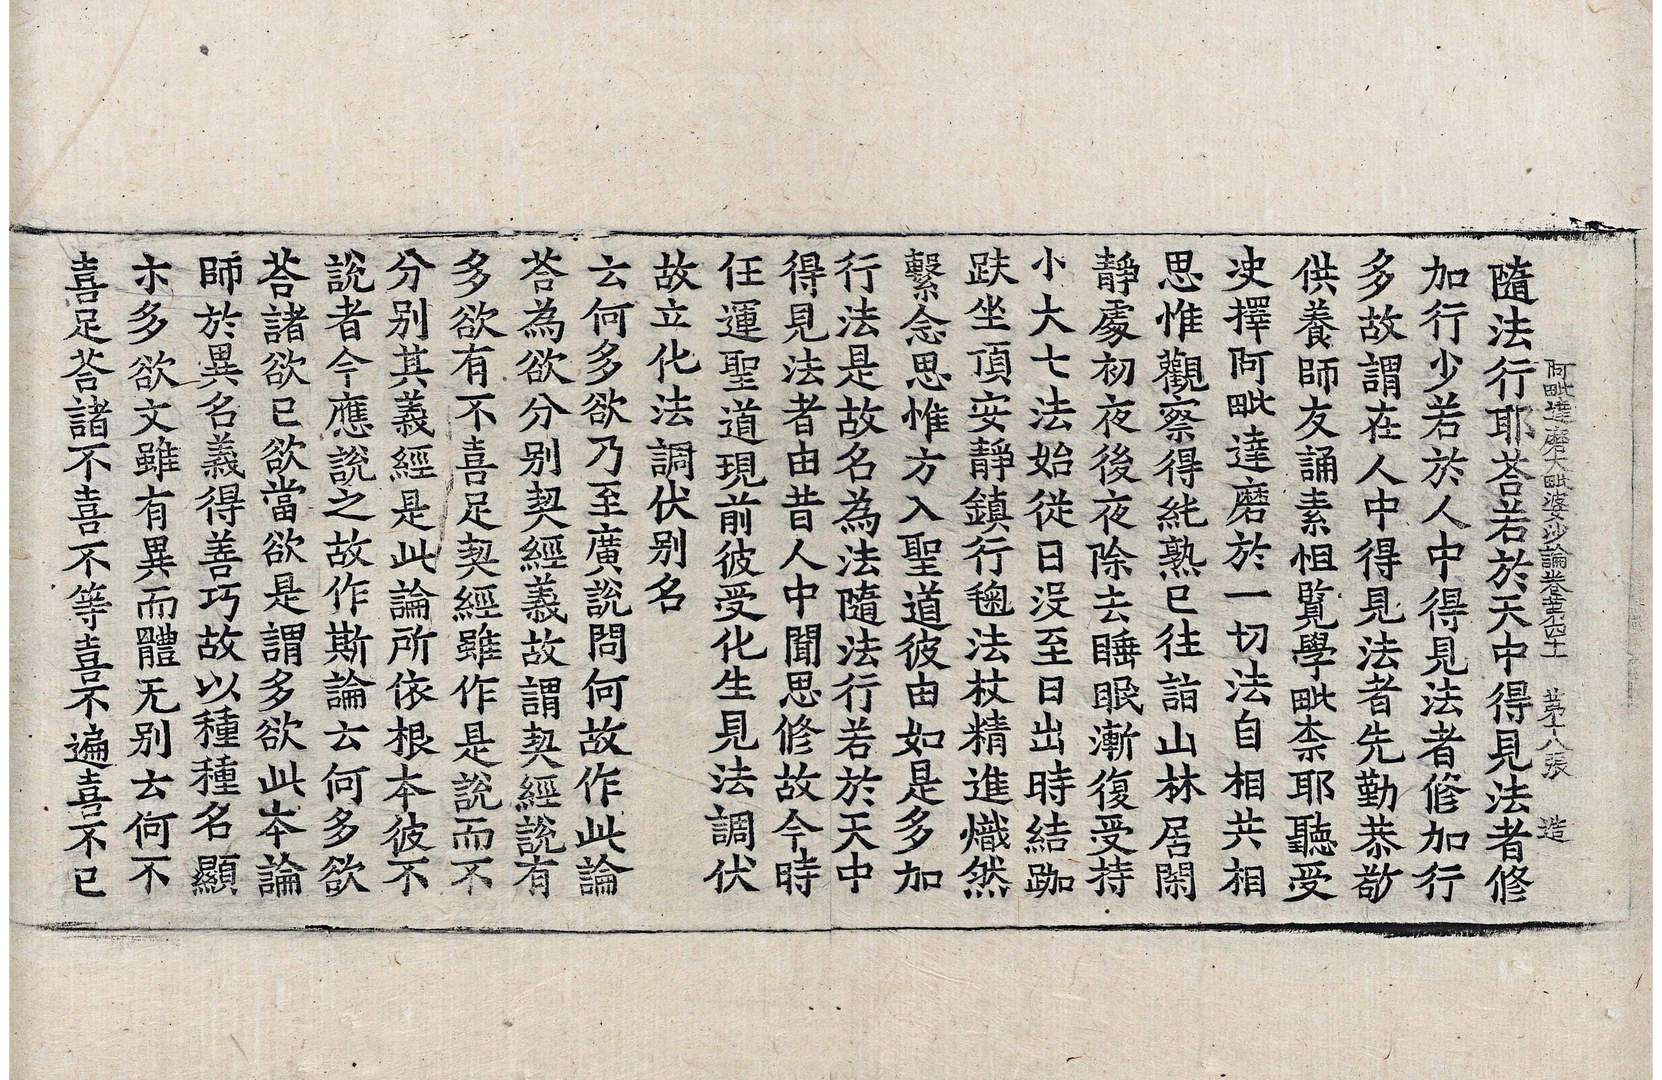 阿毗達磨大毗婆沙論卷苐四十一 苐十八張 造
隨法行耶荅若於天中得見法者修
加行少若於人中得見法者修加行
多故謂在人中得見法者先勤恭敬
供養師友誦素怛覽學毗柰耶聽受
決擇阿毗達磨於一切法自相共相
思惟觀察得純熟已往詣山林居閑
靜處初夜後夜除去睡眠漸復受持
小大七法始從日没至日出時結跏
趺坐頂安靜鎮行毱法杖精進熾然
繫念思惟方入聖道彼由如是多加
行法是故名為法隨法行若於天中
得見法者由昔人中聞思修故今時
任運聖道現前彼受化生見法調伏
故立化法調伏别名
云何多欲乃至廣說問何故作此論
荅為欲分别契經義故謂契經說有
多欲有不喜足契經雖作是說而不
分别其義經是此論所依根本彼不
說者今應說之故作斯論云何多欲
荅諸欲已欲當欲是謂多欲此夲論
師於異名義得善巧故以種種名顯
示多欲文雖有異而體无别云何不
喜足荅諸不喜不等喜不遍喜不已